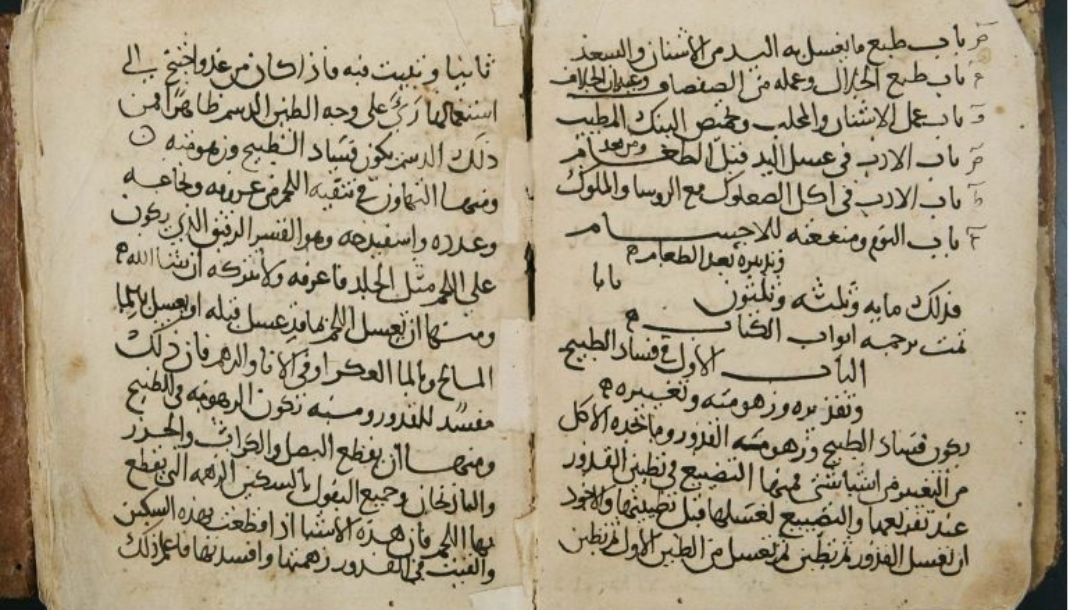 باب طبيخ ما يغسل به اليد من الاشنان والسعد
باب طبع الخلال وعمله من الصفصاف وعيدان الخلاف
باب عمل الاشنان والمحلب البنك المطيب
باب الادب في غسل اليد قبل الطعام ومن بعد
باب الادب في اكل الصعلوك مع الروسا والملوك
باب النوم ومنفعته للاجسام
وتدبيره بعد الطعام
فذلك مايه وثلثه وثلثون بابا
تمت ترجمه ابواب الكتاب
الباب الاول في فساد الطبيخ
وزهومته وتغييره
يكون فساد الطبيخ وزهومته القدور وما خذه الاكل
من التغيير من اشيا شتى فمنها التضييع في تطيين القدور
عند تفريغها والتضييع لغسلها قبل تطيينها والاجود
ان تغسل القدور ثم تطين ثم تغسل من الطين الاول ثم تطين
ثانيا وتبيت فيه فاذا كان من غد واحتيج الى
استعمالها رئ على وجه الطين الدسم ظاهرا فمن
ذلك الدسم يكون فساد الطبيخ وزهومته
ومنها التهاون في تنقيه اللحم من عروقه ونخاعه
وغدده وهو القشر الرقيق الذي يكون
على اللحم مثل الجلد فاعرفه ولا تتركه ان شا الله
ومنها ان يغسل اللحم بما قد غسل قبله او يغسل بالما
المالح وبالما العكر او في الانا والدهر فان ذلك
مفسد للقدور ومنه تكون الزهومه في الطبيخ
ومنها ان يقطع البصل والكراث والجزر
والباذنجان وجميع البقول بالسكين الزهمه التي يقطع
بها اللحم فان هذه الاشيا اذا قطعت بهذه السكين
والقيت في القدور زهمتها وافسدتها فاعلم ذلك